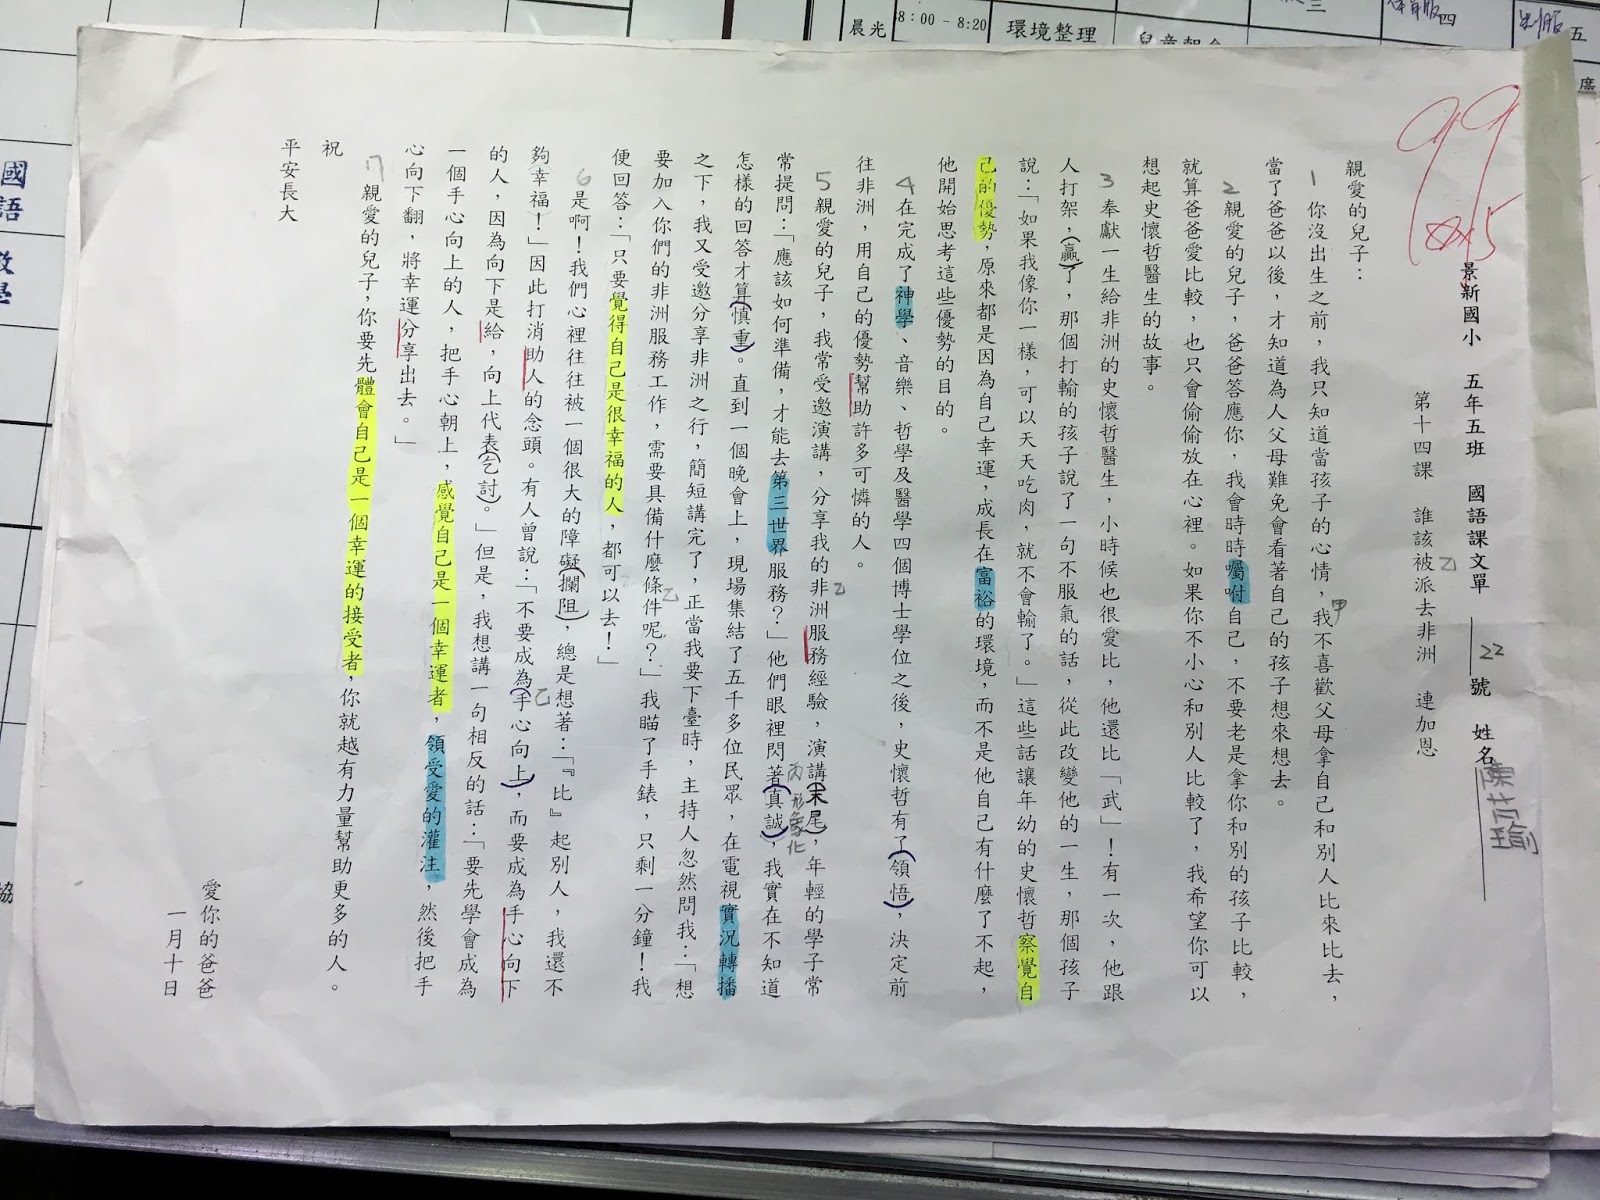 晨光
8：00 - 8:20
環境整理
三
四
五
國語
99
景新國小 五年五班 國語課文單 22號 姓名
第十四課 誰該被派去非洲 連加恩
乙
親愛的兒子：
1 你沒出生之前，我只知道當孩子的心情，我不喜歡父母拿自己和別人比來比去，
甲
當了爸爸以後，才知道為人父母難免會看著自己的孩子想來想去。
2 親愛的兒子，爸爸答應你，我會時時囑咐自己，不要老是拿你和別的孩子比較，
就算爸爸愛比較，也只會偷偷放在心裡。如果你不小心和別人比較了，我希望你可以
想起史懷哲醫生的故事。
3 奉獻一生給非洲的史懷哲醫生，小時候也很愛比，他還比「武」！有一次，他跟
人打架，(贏)了，那個打輸的孩子說了一句不服氣的話，從此改變他的一生，那個孩子
說：「如果我像你一樣，可以天天吃肉，就不會輸了。」這些話讓年幼的史懷哲察覺自
己的優勢，原來都是因為自己幸運，成長在富裕的環境，而不是他自己有什麼了不起，
他開始思考這些優勢的目的。
4 在完成了神學、音樂、哲學及醫學四個博士學位之後，史懷哲有了(領悟)，決定前
往非洲，用自己的優勢幫助許多可憐的人。
5 親愛的兒子，我常受邀演講，分享我的非洲服務經驗，演講(末尾)，年輕的學子常
乙
常提問：「應該如何準備，才能去第三世界服務？」他們眼裡閃著(真誠)，我實在不知道
丙 形象化
怎樣的回答才算(慎重)。直到一個晚會上，現場集結了五千多位民眾，在電視實況轉播
之下，我又受邀分享非洲之行，簡短講完了，正當我要下臺時，主持人忽然問我：「想
要加入你們的非洲服務工作，需要具備什麼條件呢？」我瞄了手錶，只剩一分鐘！我
乙
便回答：「只要覺得自己是很幸福的人，都可以去！」
6 是啊！我們心裡往往被一個很大的障礙(攔阻)，總是想著：「『比』起別人，我還不
夠幸福！」因此打消助人的念頭。有人曾說：「不要成為(手心向上)，而要成為手心向下
乙
的人，因為向下是給，向上代表(乞討)。」但是，我想講一句相反的話：「要先學會成為
一個手心向上的人，把手心朝上，感覺自己是一個幸運者，領受愛的灌注，然後把手
心向下翻，將幸運分享出去。」
7 親愛的兒子，你要先體會自己是一個幸運的接受者，你就越有力量幫助更多的人。
祝
平安長大
愛你的爸爸
一月十日